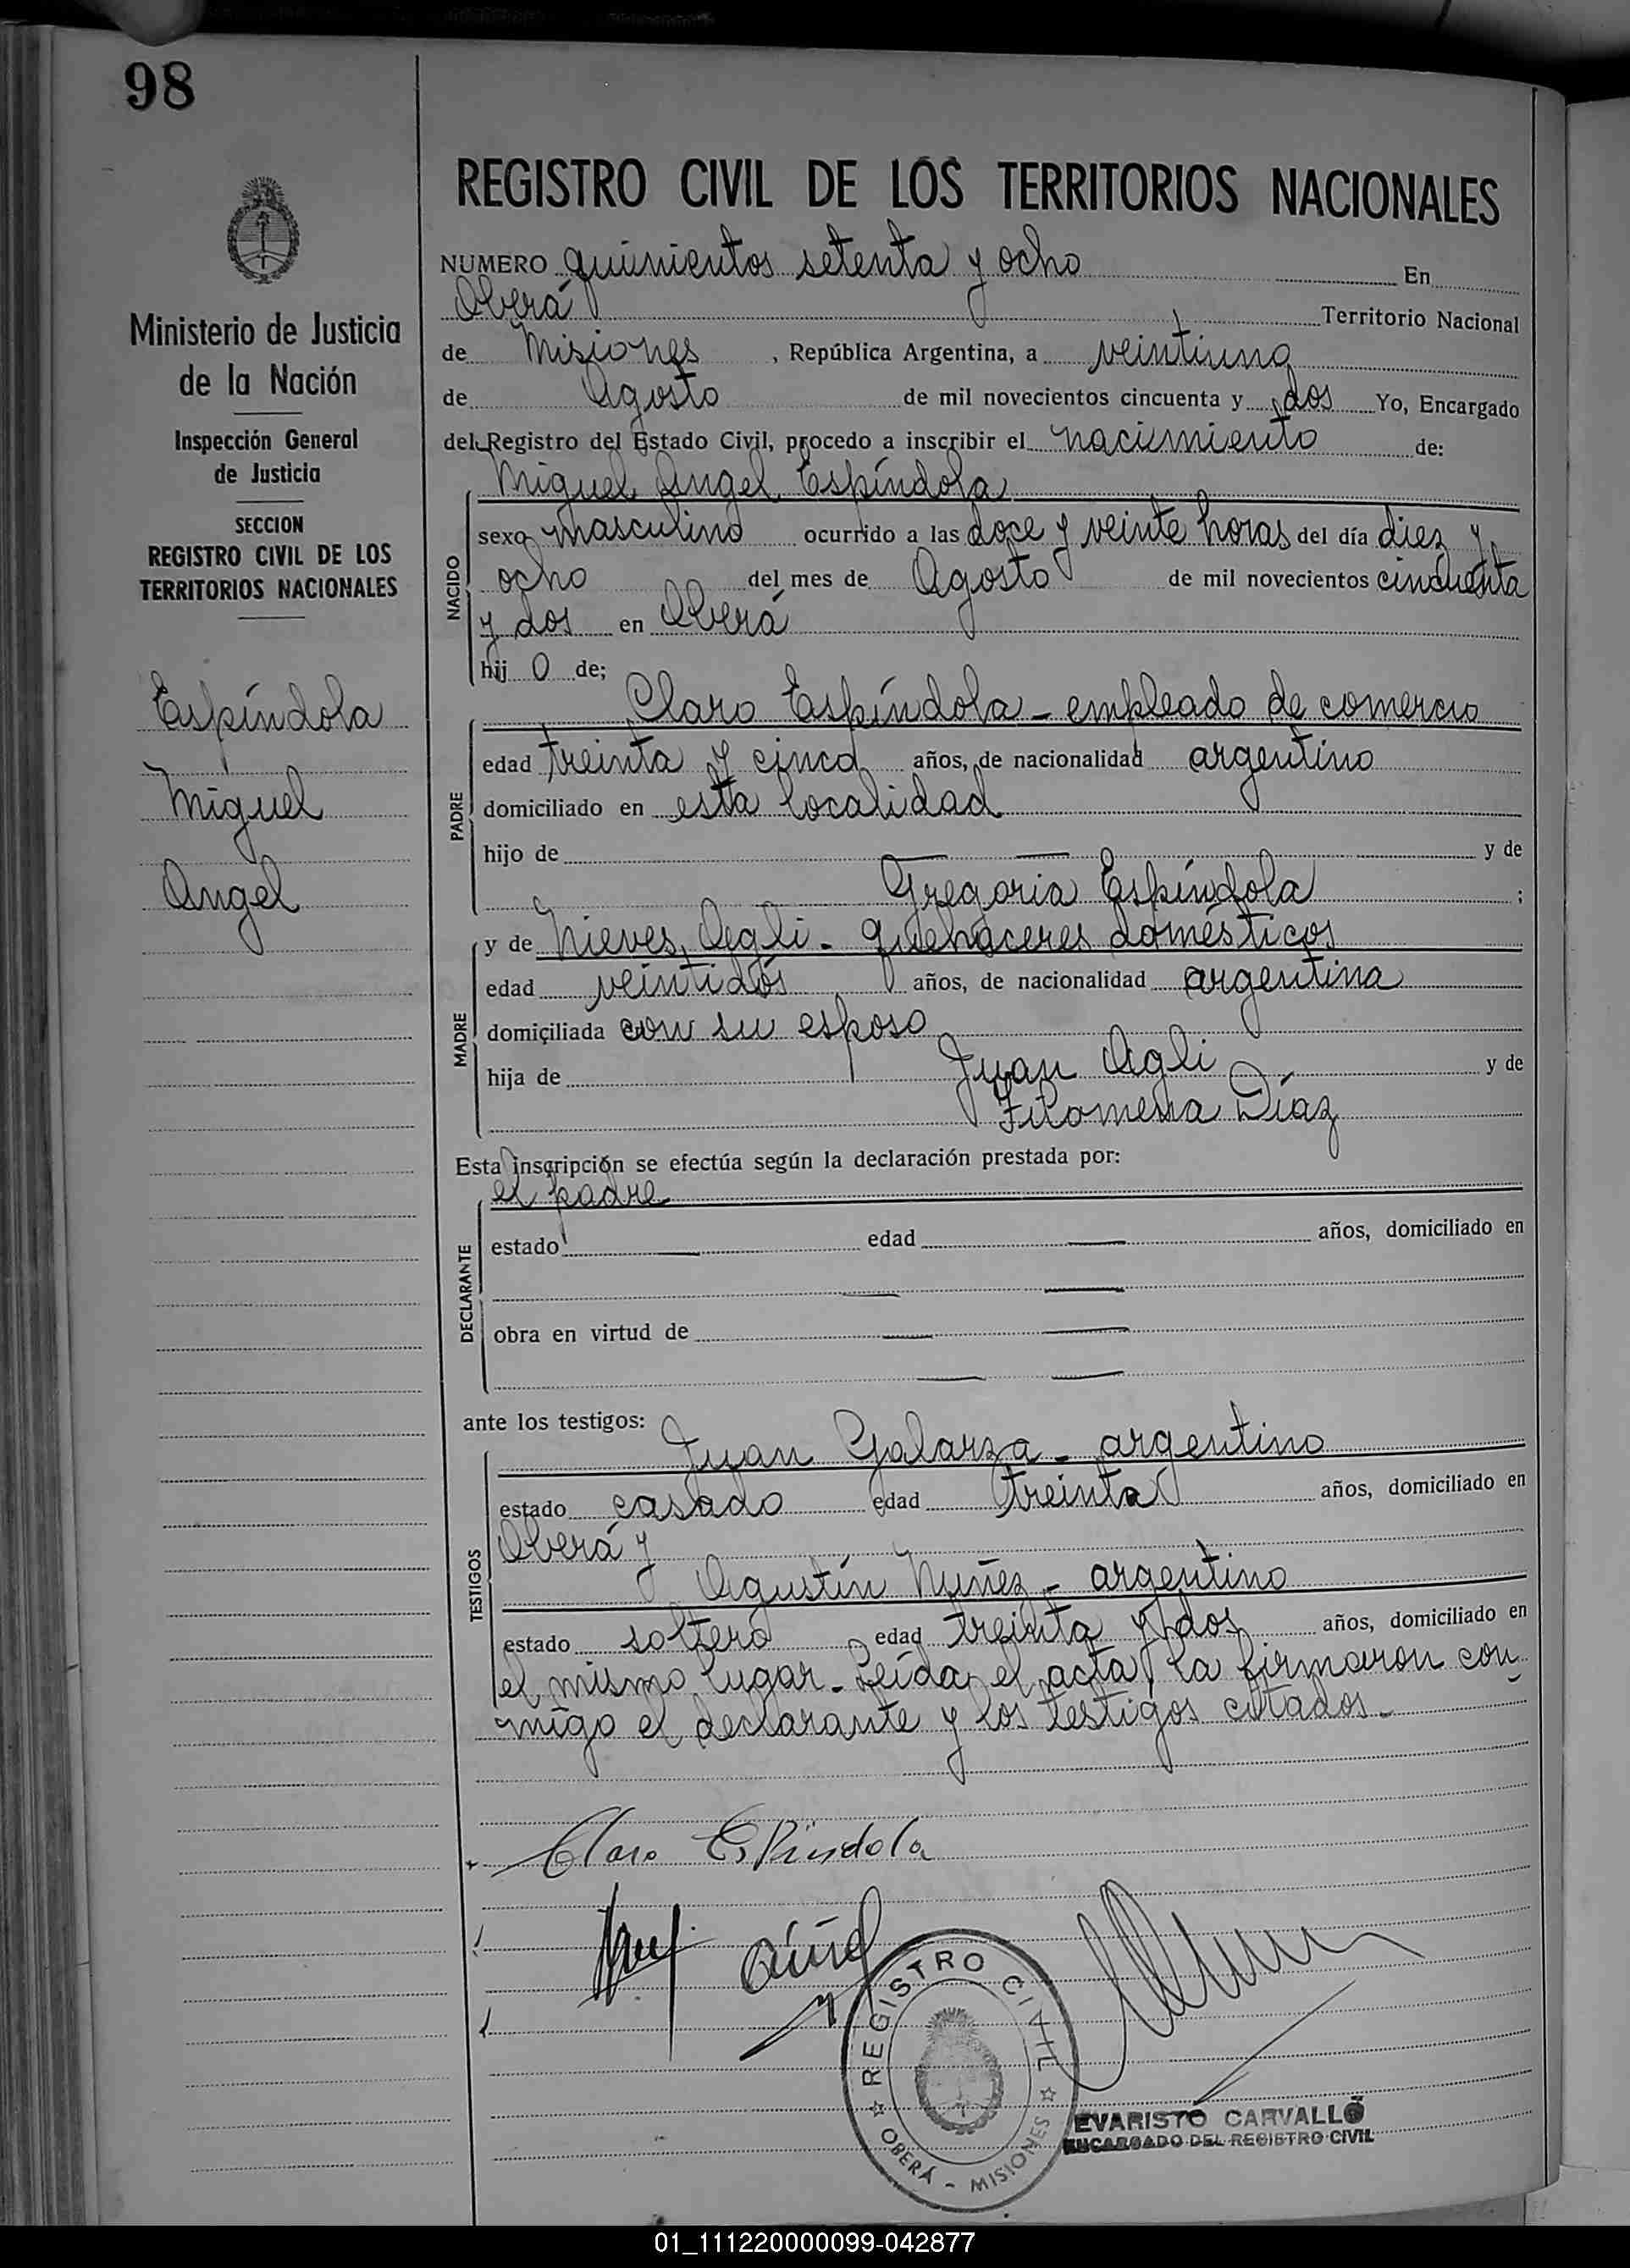 98
Ministerio de Justicia
de la Nación
Inspección General
de Justicia
SECCION
REGISTRO CIVIL DE LOS
TERRITORIOS NACIONALES
Espíndola
Miguel
Angel
REGISTRO CIVIL DE LOS TERRITORIOS NACIONALES
NUMERO quinientos setenta y ocho En
Oberá Territorio Nacional
de Misiones, República Argentina, a veintiuno
de Agosto de mil novecientos cincuenta y dos Yo, Encargado
del Registro del Estado Civil, procedo a inscribir el nacimiento de:
Miguel Angel Espíndola
NACIDO
sexo masculino ocurrido a las doce y veinte horas del día diez y
ocho del mes de Agosto de mil novecientos cincuenta
y dos en Oberá
hij o de;
Claro Espíndola - empleado de comercio
PADRE
edad treinta y cinco años, de nacionalidad argentino
domiciliado en esta localidad
hijo de — — y de
Gregoria Espíndola ;
MADRE
y de Nieves Agli - quehaceres domésticos
edad veintidós años, de nacionalidad argentina
domiciliada con su esposo
hija de Juan Agli y de
Filomena Díaz
Esta inscripción se efectúa según la declaración prestada por:
el padre
DECLARANTE
estado — edad — años, domiciliado en
— —
obra en virtud de — —
— —
ante los testigos:
Juan Galarza - argentino
TESTIGOS
estado casado edad treinta años, domiciliado en
Oberá y
Agustín Nuñez - argentino
estado soltero edad treinta y dos años, domiciliado en
el mismo lugar - Leída el acta, la firmaron con-
migo el declarante y los testigos citados.-
Claro Espíndola
REGISTRO CIVIL
OBERÁ - MISIONES
EVARISTO CARVALLO
ENCARGADO DEL REGISTRO CIVIL
01_111220000099-042877